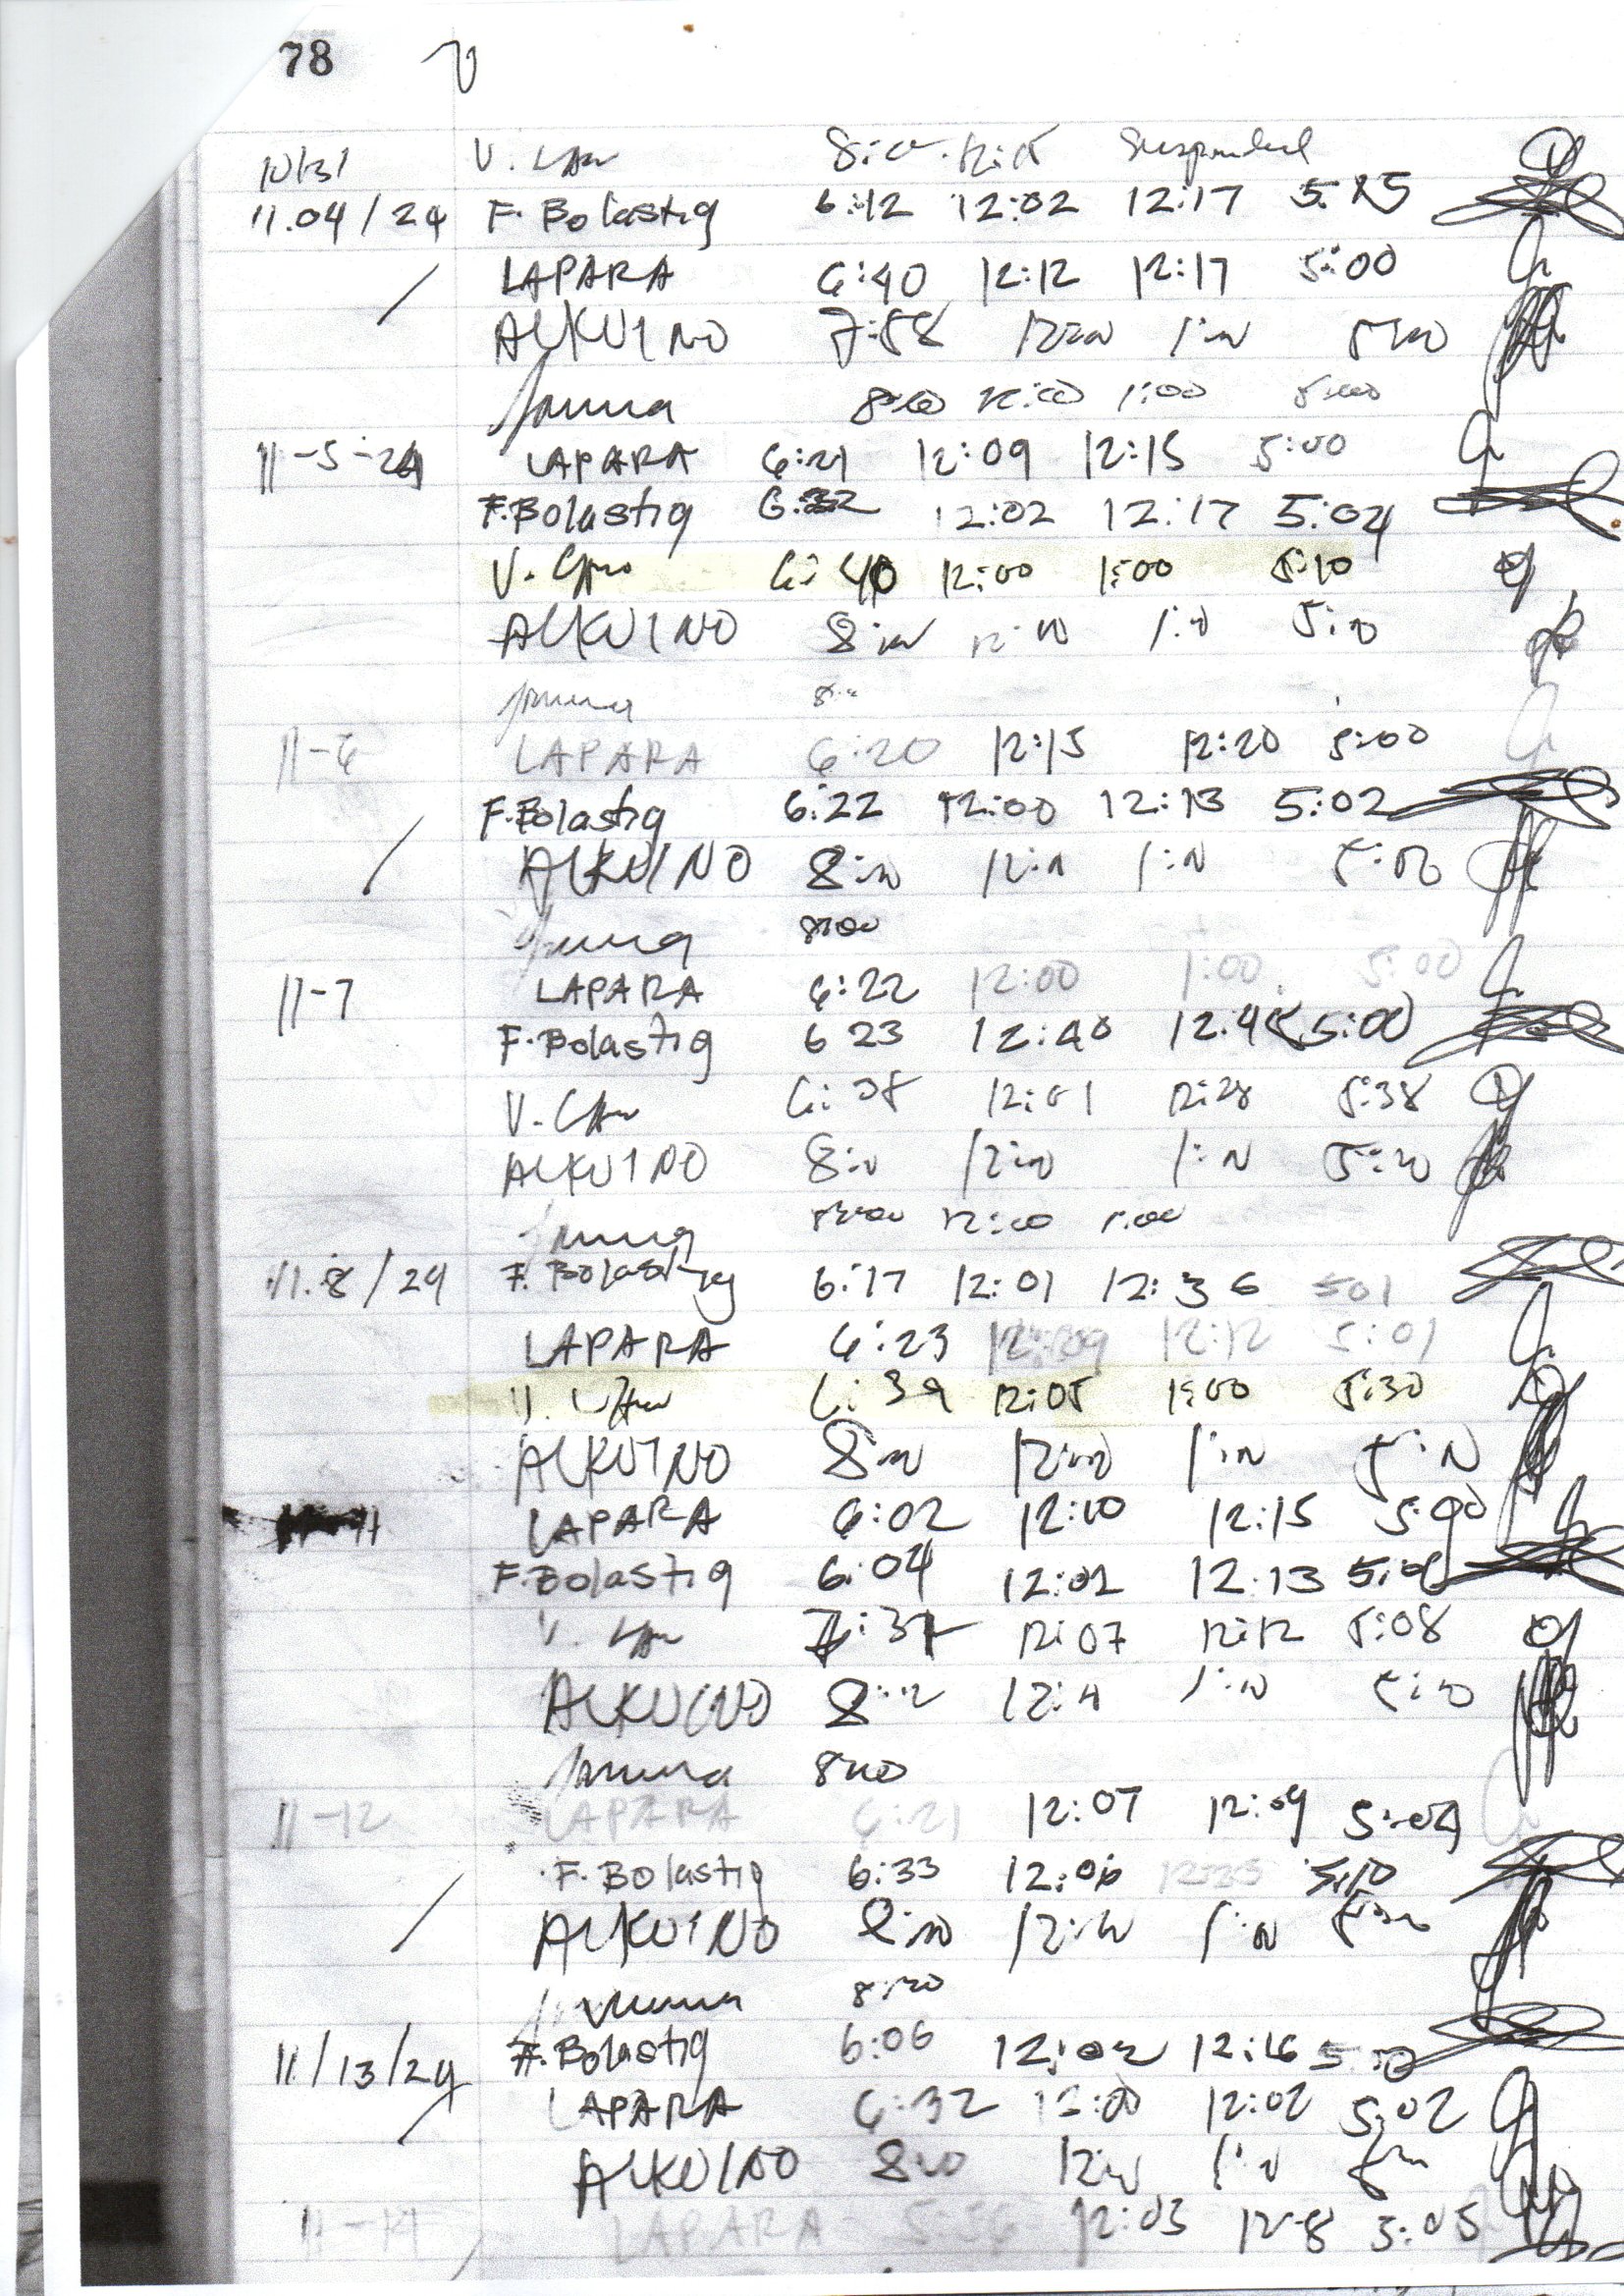 78
10/31 V. 8:00 Suspended
11.04/24 F. Bolastig 6:12 12:02 12:17 5:15
LAPARA 6:40 12:12 12:17 5:00
ALKUINO 7:58 12:00 1:00 5:00
8:00 12:00 1:00 5:00
11-5-24 LAPARA 6:21 12:09 12:15 5:00
F.Bolastig 6:32 12:02 12:17 5:04
V. 6:40 12:00 1:00 5:10
ALKUINO 8:00 12:00 1:00 5:00
8:00
11-6 LAPARA 6:20 12:15 12:20 5:00
F.Bolastig 6:22 12:00 12:13 5:02
ALKUINO 8:00 12:00 1:00 5:00
8:00
11-7 LAPARA 6:22 12:00 1:00 5:00
F.Bolastig 6 23 12:40 12:45 5:00
V. 6:38 12:01 12:28 5:38
ALKUINO 8:00 12:00 1:00 5:00
8:00 12:00 1:00
11.8/24 F. Bolastig 6:17 12:01 12:36 501
LAPARA 6:23 12:09 12:12 5:01
V. 6:39 12:05 1:00 5:30
ALKUINO 8:00 12:00 1:00 5:00
11 LAPARA 6:02 12:10 12:15 5:00
F.Bolastig 6:04 12:02 12:13
V. 12:07 12:12 5:08
ALKUINO 8:00 12:00 1:00 5:00
8:00
11-12 LAPARA 6:21 12:07 12:09 5:04
F. Bolastig 6:33 12:06 12:23 5:10
ALKUINO 8:00 12:00 1:00 5:00
8:00
11/13/24 F.Bolastig 6:06 12:02 12:16
LAPARA 6:32 12:00 12:02 5:02
ALKUINO 8:00 12:00 1:00
11-14 LAPARA 5:56 12:03 12:8 5:05